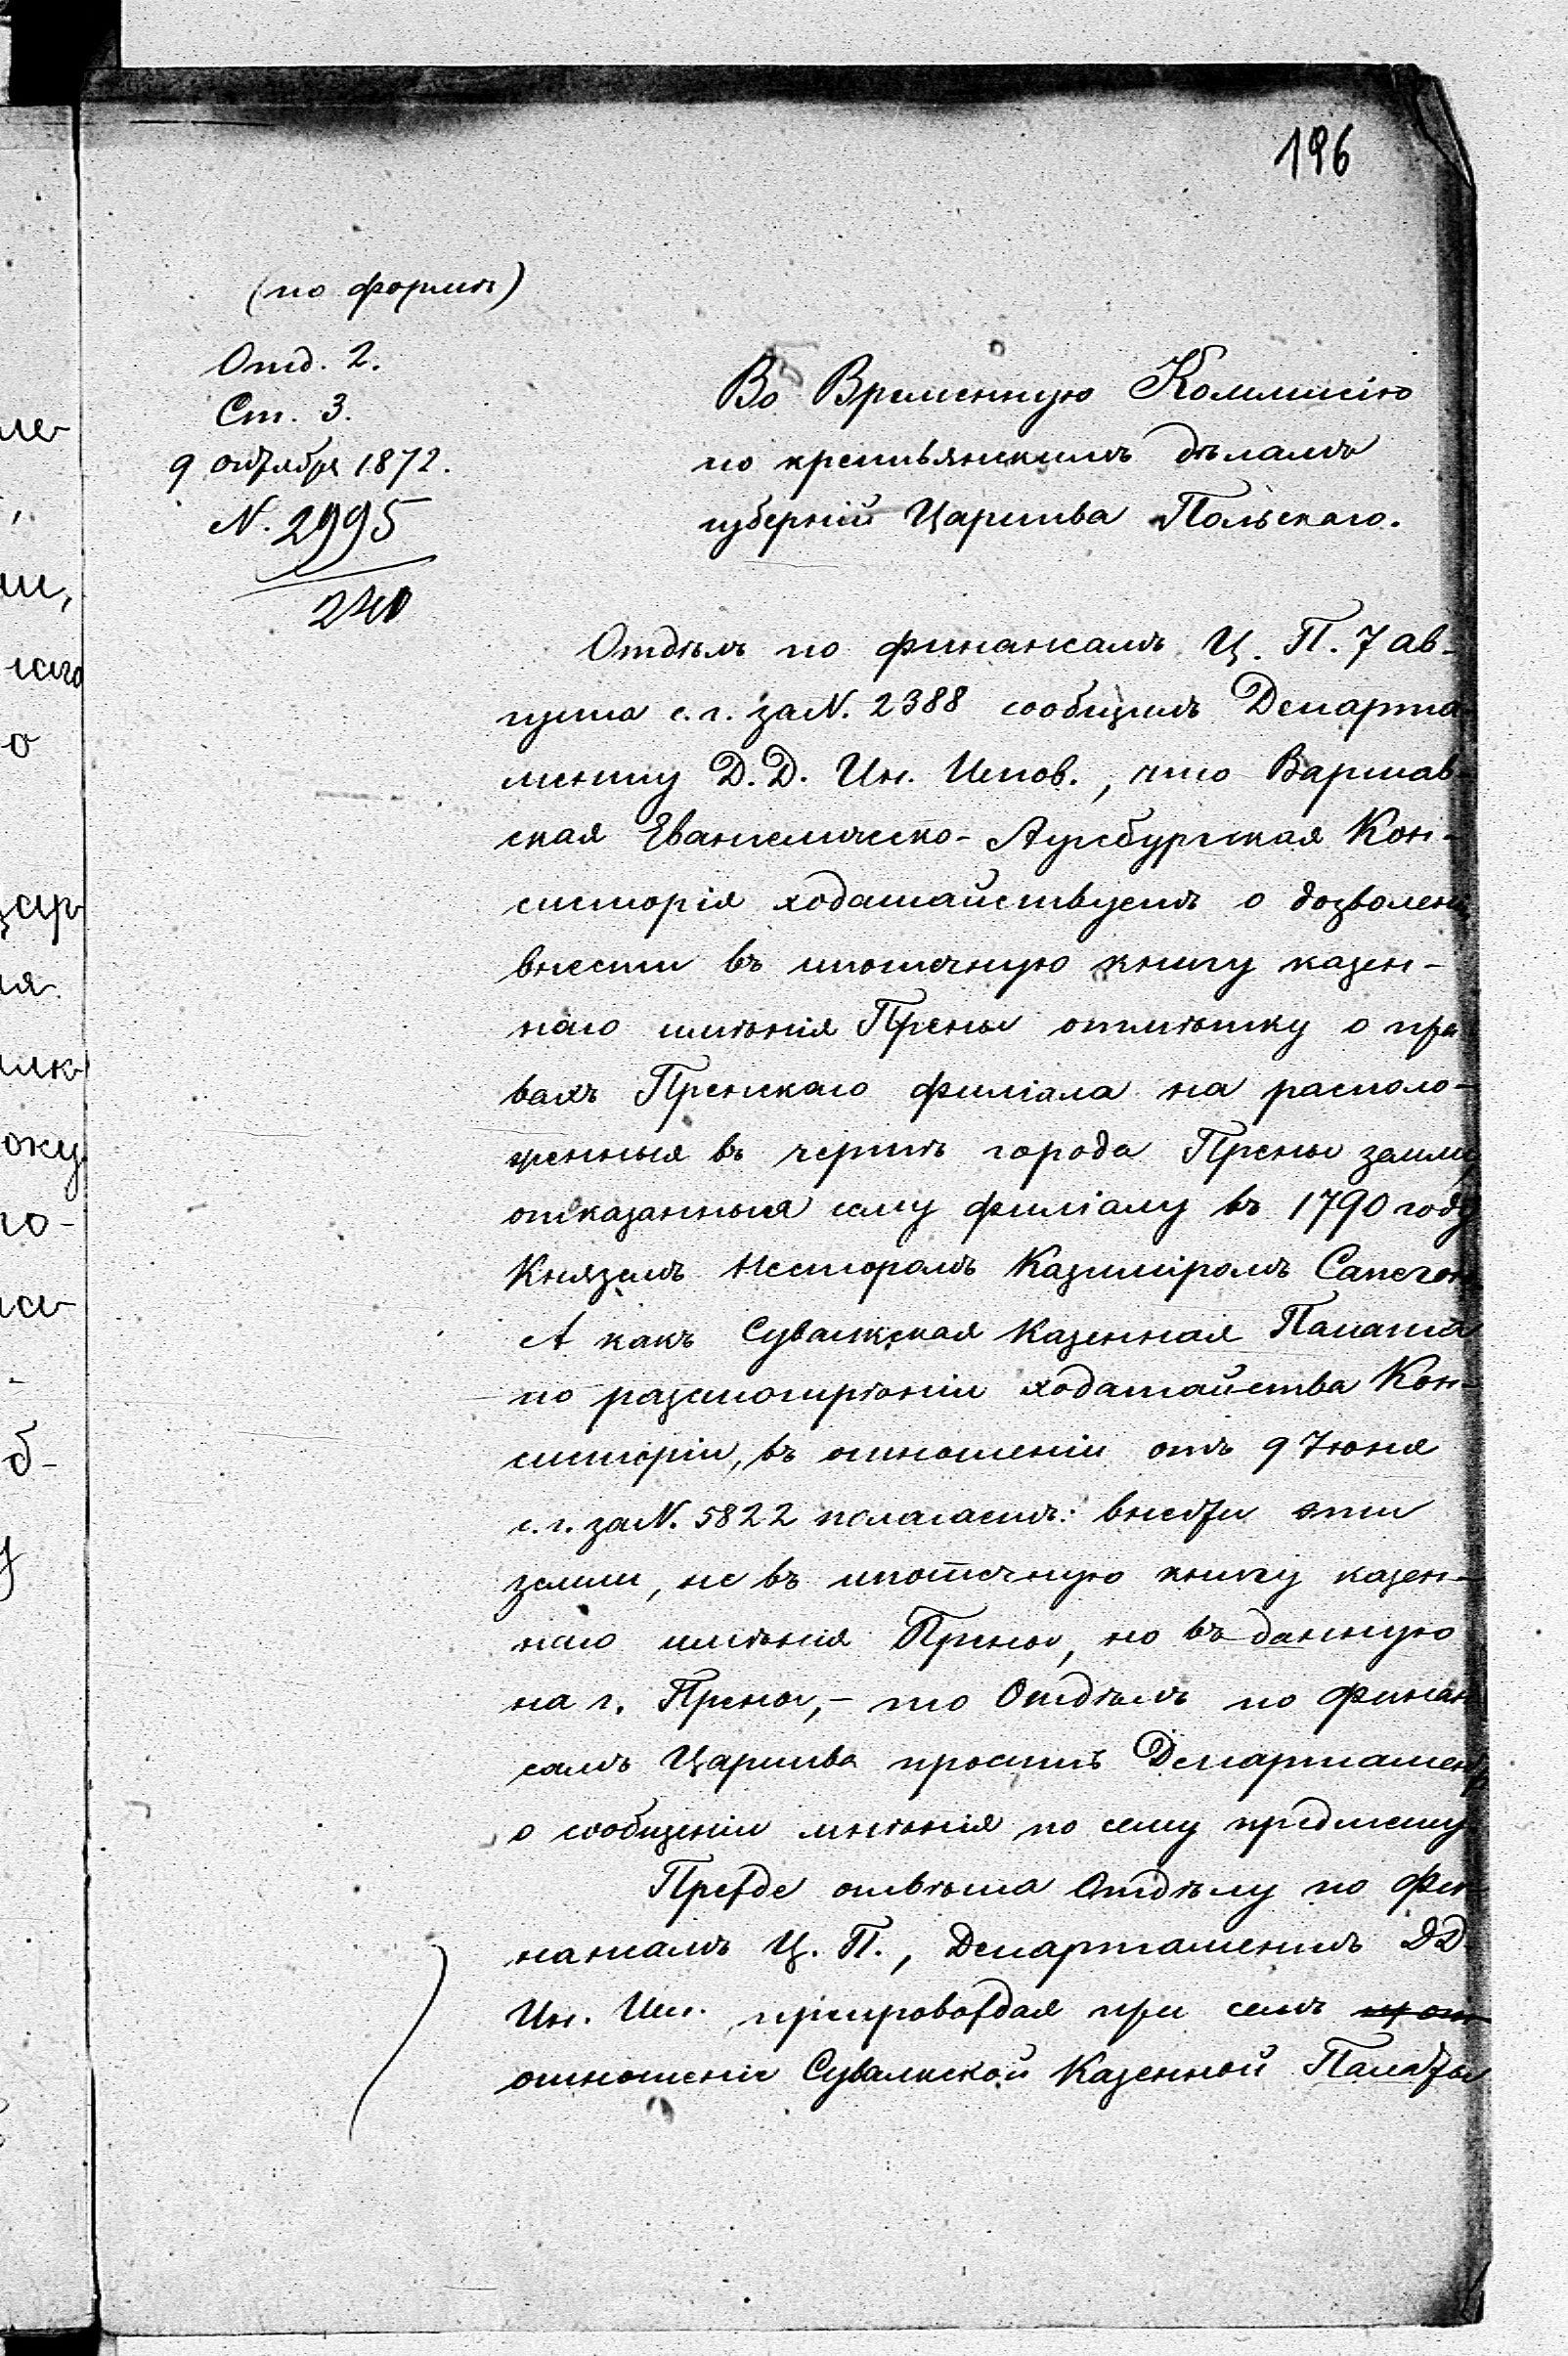 196
(по формѣ)
Отд. 2.
Ст. 3.
9 октября 1872.
N. 2995
240
Во Временную Коммисію
по крестьянскимъ дѣламъ
губерній Царства Польскаго.
Отдѣлъ по финансамъ Ц. П. 7 ав-
густа с. г. за N. 2388 сообщилъ Департа-
менту Д. Д. Ин. Испов., что Варшав-
ская Евангелическо-Аугсбургская Кон-
систорія ходатайствуетъ о дозволеніи
внести въ ипотечную книгу казен-
наго имѣнія Прены отмѣтку о пра
вахъ Пренскаго филіала на располо-
женныя въ чертѣ города Прены земли,
отказанныя сему филіалу въ 1790 году
Княземъ Несторомъ Казиміромъ Сапегою
А какъ Сувалкская Казенная Палата
по разсмотрѣніи ходатайства Кон-
систоріи, въ отношеніи отъ 9 Іюня
с. г. за N. 5822 полагаетъ: внести эти
земли, не въ ипотечную книгу казен-
наго имѣнія Прены, но въ данную
на г. Прены,- то Отдѣлъ по Финан
самъ Царства проситъ Департаментъ
о сообщеніи мнѣнія по сему предмету.
Прежде отвѣта Отдѣлу по Фи-
нансамъ Ц. П., Департаментъ ДД.
Ин. Исп. препровождая при семъ
отношеніе Сувалкской Казенной Палаты
ле-
ии,
каго
о
цар
ия
лк
оку
го-
б-